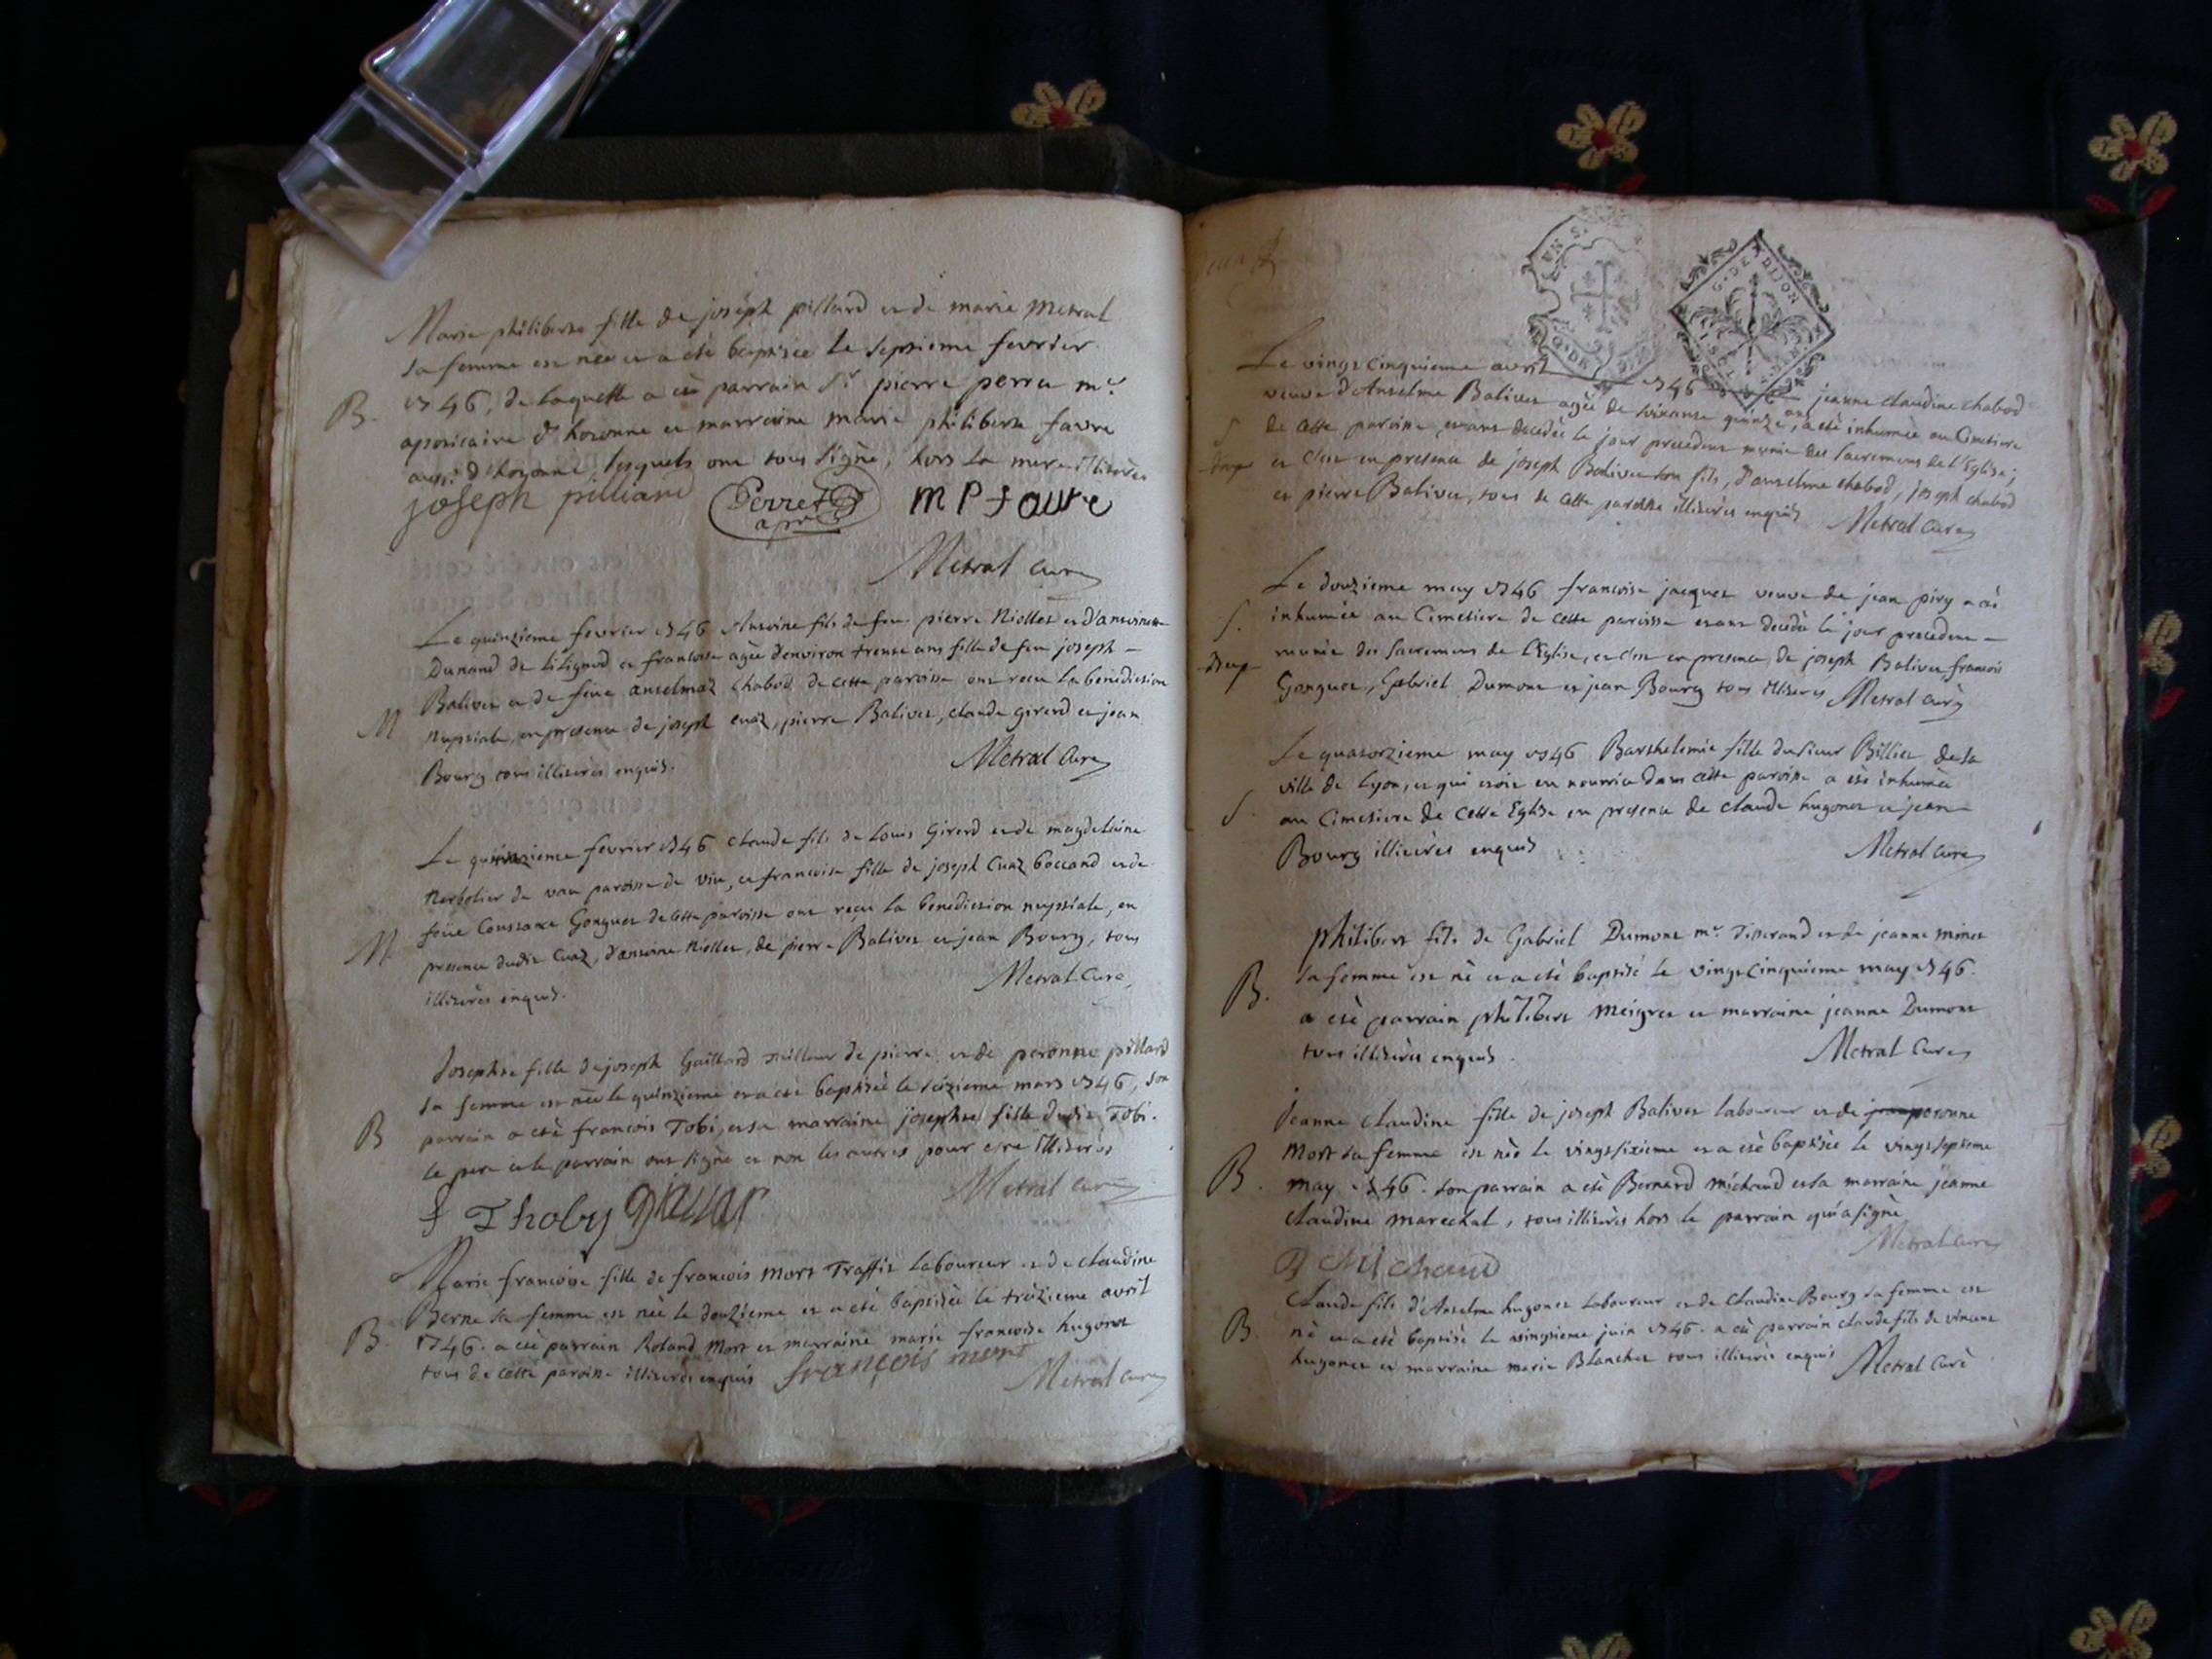 Marie philiberte fille de joseph pillard et de marie Metral
sa femme est née et a eté baptisée le septieme fevrier
1746, de laquelle a eté parrain Sr pierre perret me
apoticaire d'hotonne et marraine marie philiberte favre
aussi d'hotonne, lesquels ont tous signé, hors la mere illiterée
B.
joseph pilliard Perret apre m P favre
Metral curé
Le quinzieme fevrier 1746 Antoine fils de feu pierre Niollet et d'antoinette
Dunand de Lilignod et francoise agée d'environ trente ans fille de feu joseph
Balivet et de feüe anselmaz Chabod de cette paroisse ont recu la benediction
M
nuptiale, en presence de joseph cuaz, pierre Balivet, claude girerd et jean
Bourg tous illiterés enquis.
Metral Curé
Le quinzieme fevrier 1746 claude fils de Louis Girerd et de magdelaine
Nerbolier de vau paroisse de viu, et francoise fille de joseph Cuaz boccand et de
feüe Constance Gonguet de cette paroisse ont recu la benediction nuptiale, en
M.
presence dudit Cuaz, d'antoine Niollet, de pierre Balivet et jean Bourg, tous
illiterés enquis.
Metral Curé
Josephte fille de joseph Gaillard tailleur de pierre et de peronne pillard
sa femme est née le quinzieme et a eté baptisée le seizieme mars 1746, son
B
parrain a eté francois Tobi, et sa marraine josephte fille dudit Tobi.
le pere et le parrain ont signé et non les autres pour etre illiterés
Metral curé
f Thoby
Marie francoise fille de francois Mort Traffit Laboureur et de claudine
Berne sa femme est née le douzieme et a eté baptisée le treizieme avril
B.
1746. a eté parrain Roland Mort et marraine marie francoise hugonet
tous de cette paroisse illiterés enquis françois mort
Metral curé
UN S.
G. DE DIJON
Le vingt cinquieme avril 1746 jeanne claudine chabod
veuve d'Anselme Balivet agée de soixante quinze ans, a eté inhumée au Cimetiere
S
de cette paroisse, etant decedée le jour precedent munie des sacremens de l'Eglise;
et c'est en presence de joseph Balivet son fils, d'anselme chabod, joseph chabod
et pierre Balivet, tous de cette paroisse illiterés enquis Metral Curé
Le douzieme may 1746 francoise jacquet veuve de jean piry a eté
S.
inhumée au Cimetiere de cette paroisse etant decedée le jour precedent
munie des sacremens de l'Eglise, et c'est en presence, de joseph Balivet, francois
Gonguet, Gabriel Dumont et jean Bourg tous illiterés Metral Curé
Le quatorzieme may 1746 Barthelemie fille du sieur Billiet de la
ville de Lyon, et qui etoit en nourrice dans cette paroisse a eté inhumée
S.
au Cimetiere de cette Eglise en presence de claude hugonet et jean
Bourg illiterés enquis
Metral Curé
Philibert fils de Gabriel Dumont me Tisserand et de jeanne minet
sa femme est né et a eté baptisé le vingt cinquieme may 1746.
B.
a eté parrain philibert Meigret et marraine jeanne Dumont
tous illiterés enquis.
Metral Curé
Jeanne claudine fille de joseph Balivet laboureur et de peronne
Mort sa femme est née le vingt sixieme et a eté baptisée le vingt septieme
B.
may 1746. son parrain a eté Bernard michaud et sa marraine jeanne
claudine marechal, tous illiterés hors le parrain qui a signé
Metral Curé
B Michaud
Claude fils d'Anselme hugonet Laboureur et de claudine Bourg sa femme est
B.
né et a eté baptisé le vingtieme juin 1746. a eté parrain claude fils de vincent
hugonet et marraine marie Blanchet tous illiterés enquis Metral Curé